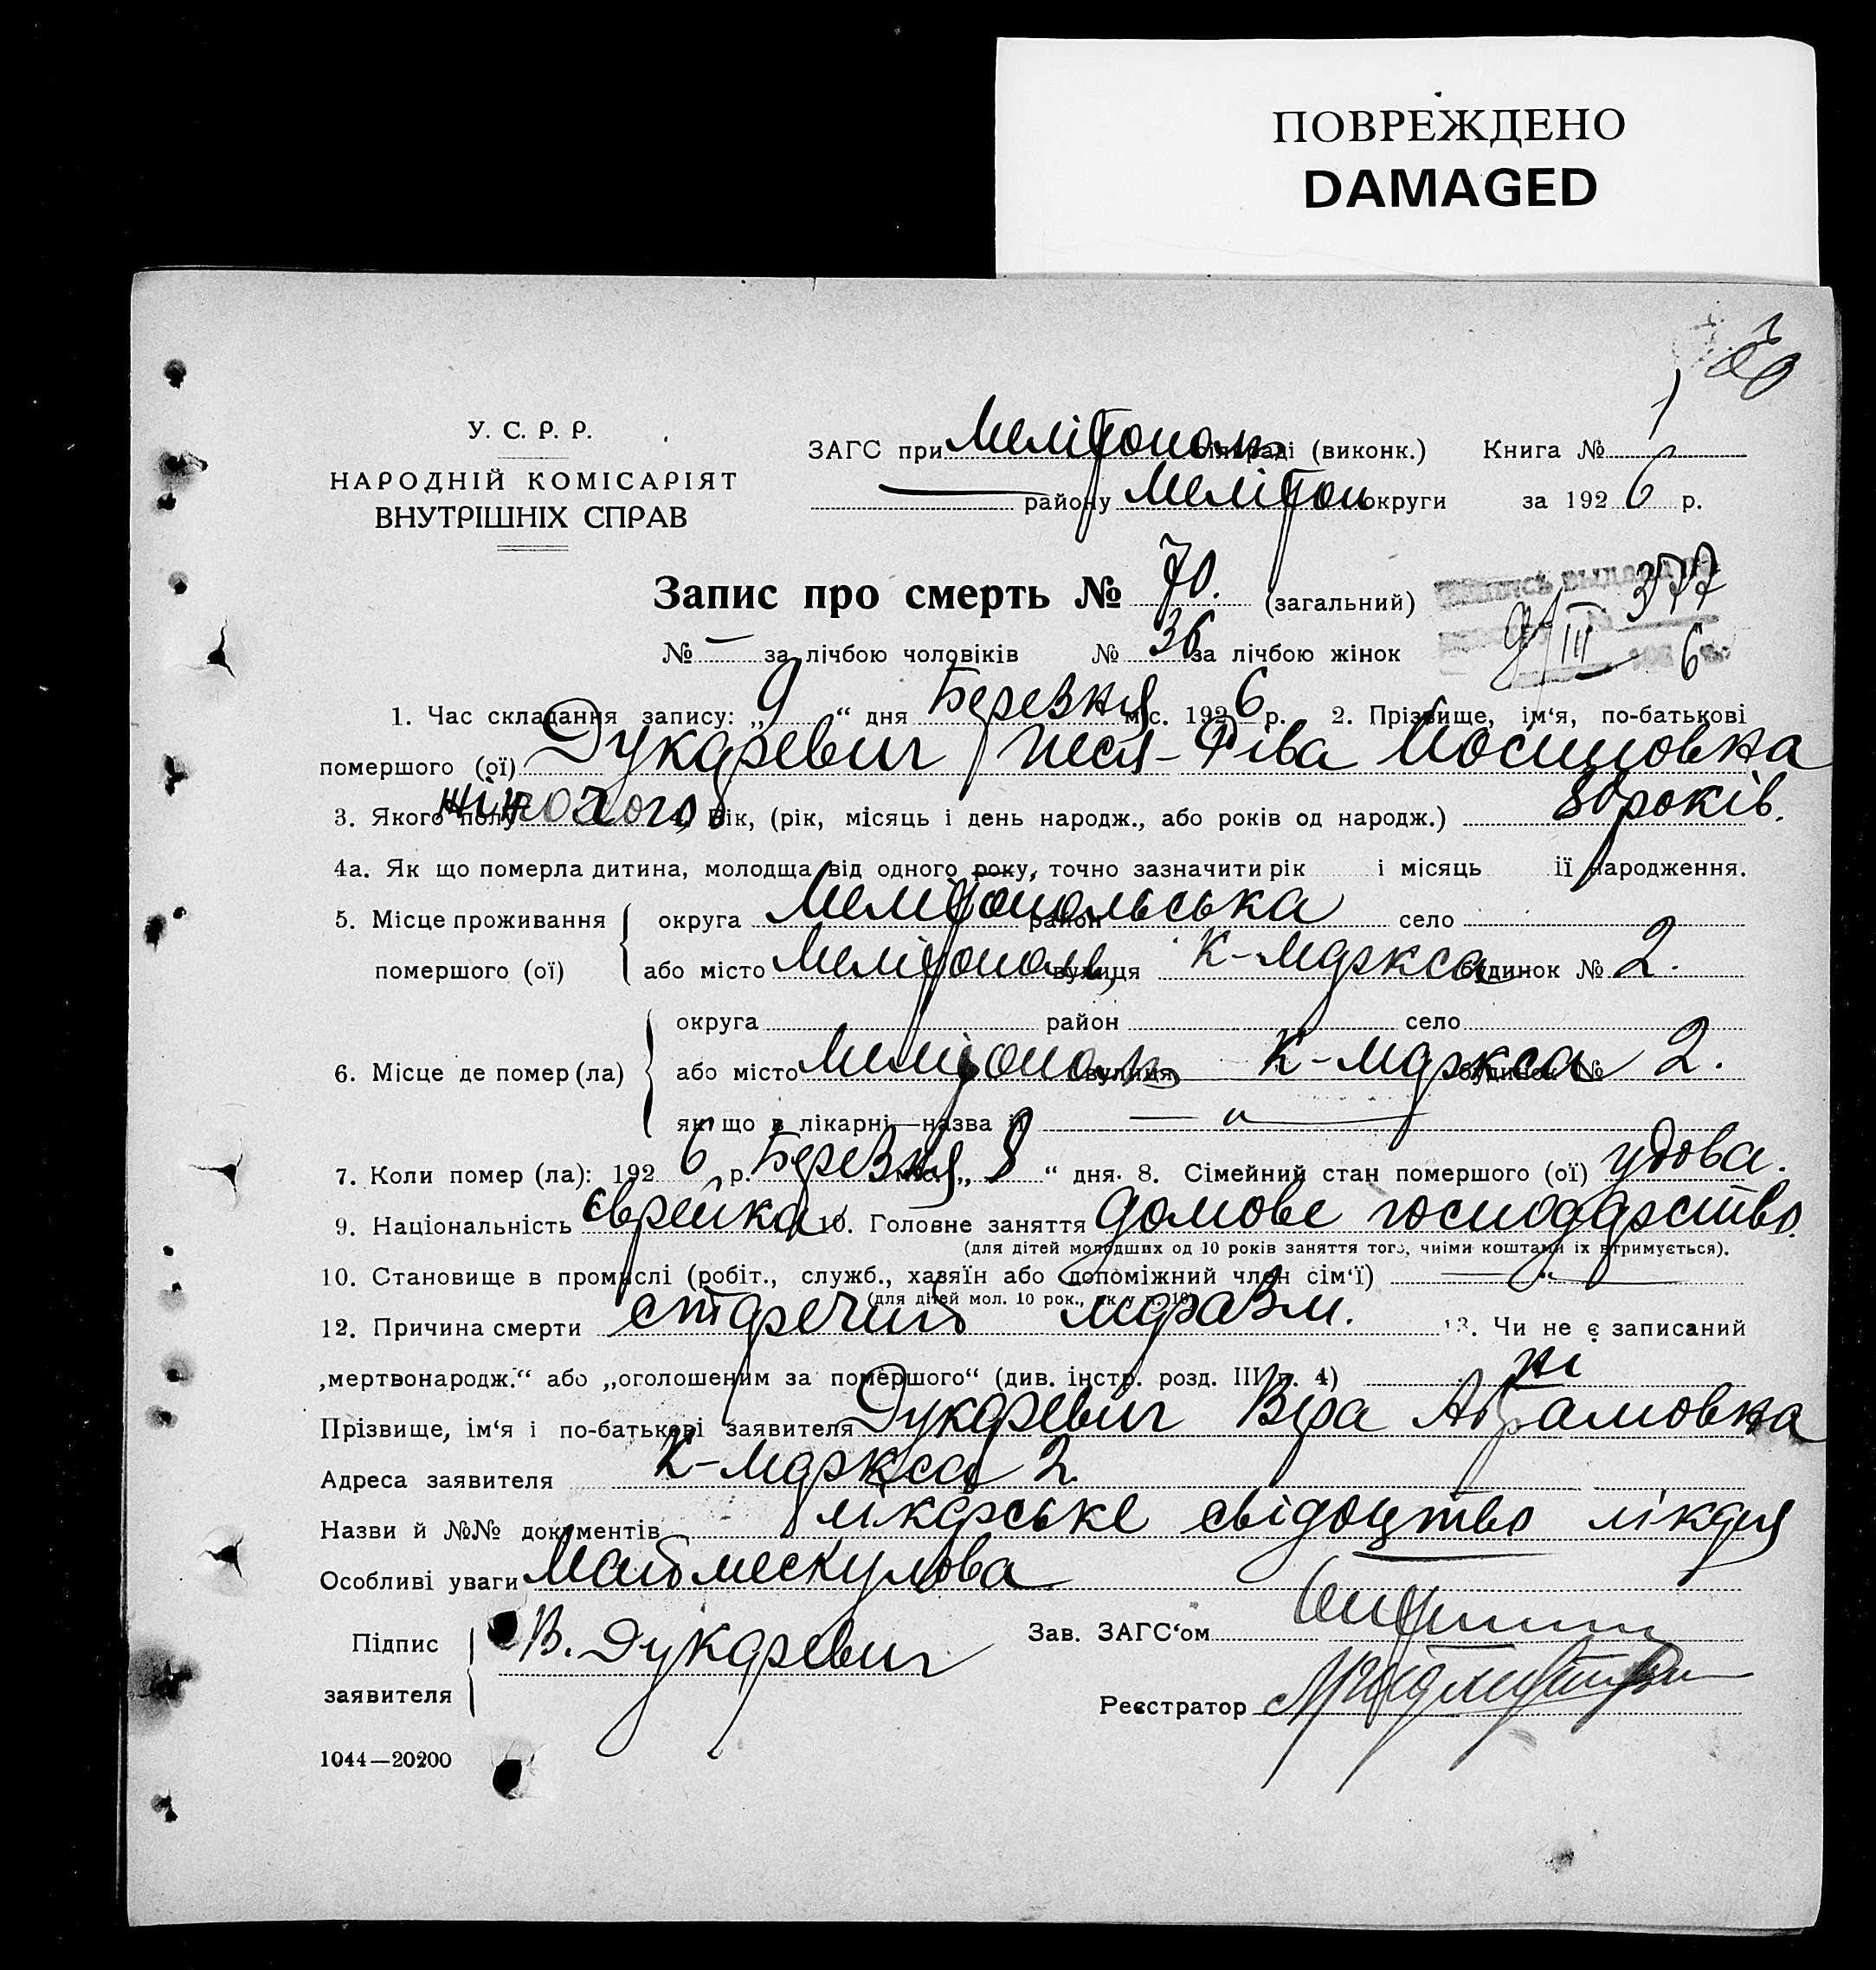 ПОВРЕЖДЕНО
DAMAGED
У. С. Р. Р.
НАРОДНІЙ КОМІСАРІЯТ
ВНУТРІШНІХ СПРАВ
ЗАГС при Мелітопол міськраді (виконк.) Книга №
району Мелітоп округи за 1926 р.
Запис про смерть № 70. (загальний)
377
№ — за лічбою чоловіків № 36 за лічбою жінок
9/III 6
1. Час складання запису: „9“ дня Березня міс. 1926 р. 2. Прізвище, ім‘я, по-батькові
помершого (ої) Дукаревич Песя-Ріва Йосиповна
3. Якого полу жіночого 4. Вік, (рік, місяць і день народж., або років од народж.) 80 років.
4а. Як що померла дитина, молодща від одного року, точно зазначити рік і місяць її народження.
5. Місце проживання помершого (ої) округа Мелітопольська район село
або місто Мелітополь, вулиця К-Маркса будинок № 2.
6. Місце де помер (ла) округа район село
або місто Мелітополь вулиця К-Маркса будинок № 2.
як що в лікарні—назва її — „ —
7. Коли помер (ла): 1926 р. Березня міс. „8“ дня. 8. Сімейний стан помершого (ої) удова.
9. Національність єврейка 10. Головне заняття домове господарство.
(для дітей молодших од 10 років заняття того, чиїми коштами їх втримується).
10. Становище в промислі (робіт., служб., хазяїн або допоміжний член сім‘ї) — „ —
(для дітей мол. 10 рок., як у п. 10)
12. Причина смерти старечий маразм. 13. Чи не є записаний
„мертвонародж.“ або „оголошеним за помершого“ (див. інстр. розд. III п. 4) ні
Прізвище, ім‘я і по-батькові заявителя Дукаревич Віра Абрамовна
Адреса заявителя К-Маркса 2.
Назви й №№ документів лікарське свідоцтво лікаря
Особливі уваги
Підпис заявителя В. Дукаревич
Зав. ЗАГС‘ом
Реєстратор
1044—20200